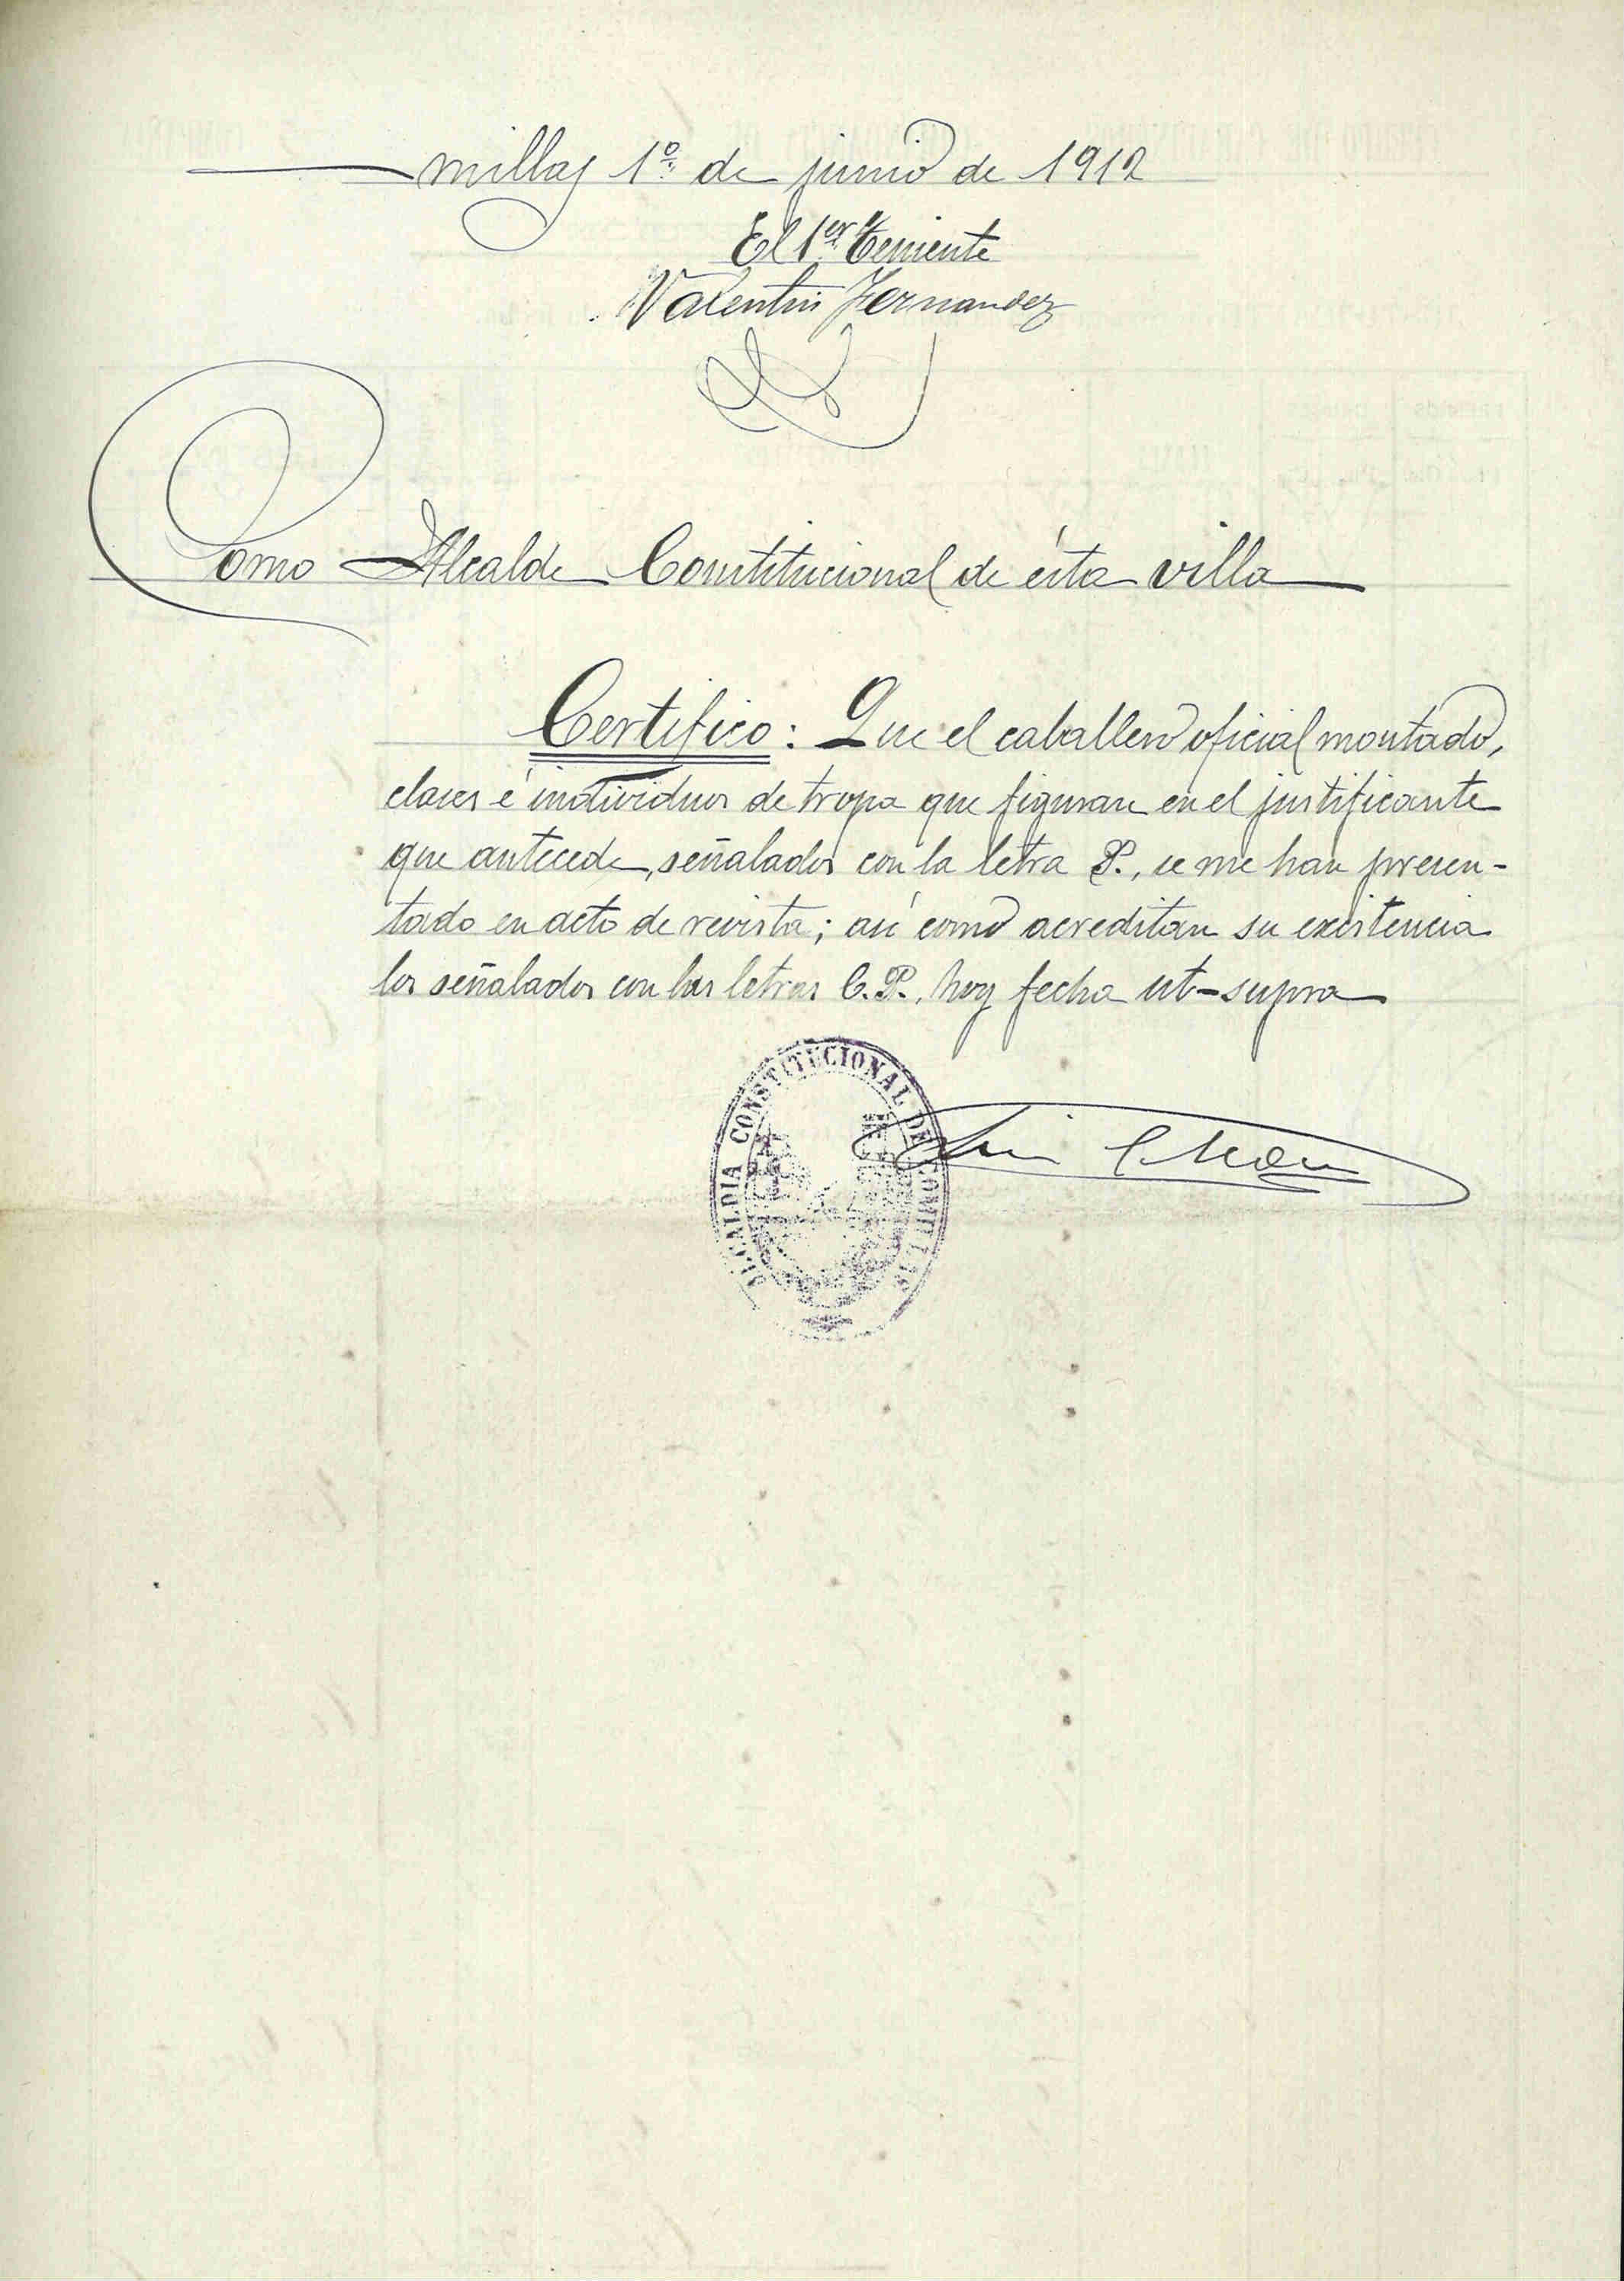 millas 1º de junio de 1912
El 1er Teniente
Valentin Fernandez
Como Alcalde Constitucional de ésta villa
Certifico: Que el caballero oficial montado,
clases é individuos de tropa que figuran en el justificante
que antecede, señalados con la letra P., se me han presen-
tado en acto de revista; asi como acreditan su existencia
los señalados con las letras C.P., hoy fecha ut-supra
ALCALDIA CONSTITUCIONAL DE COMILLAS